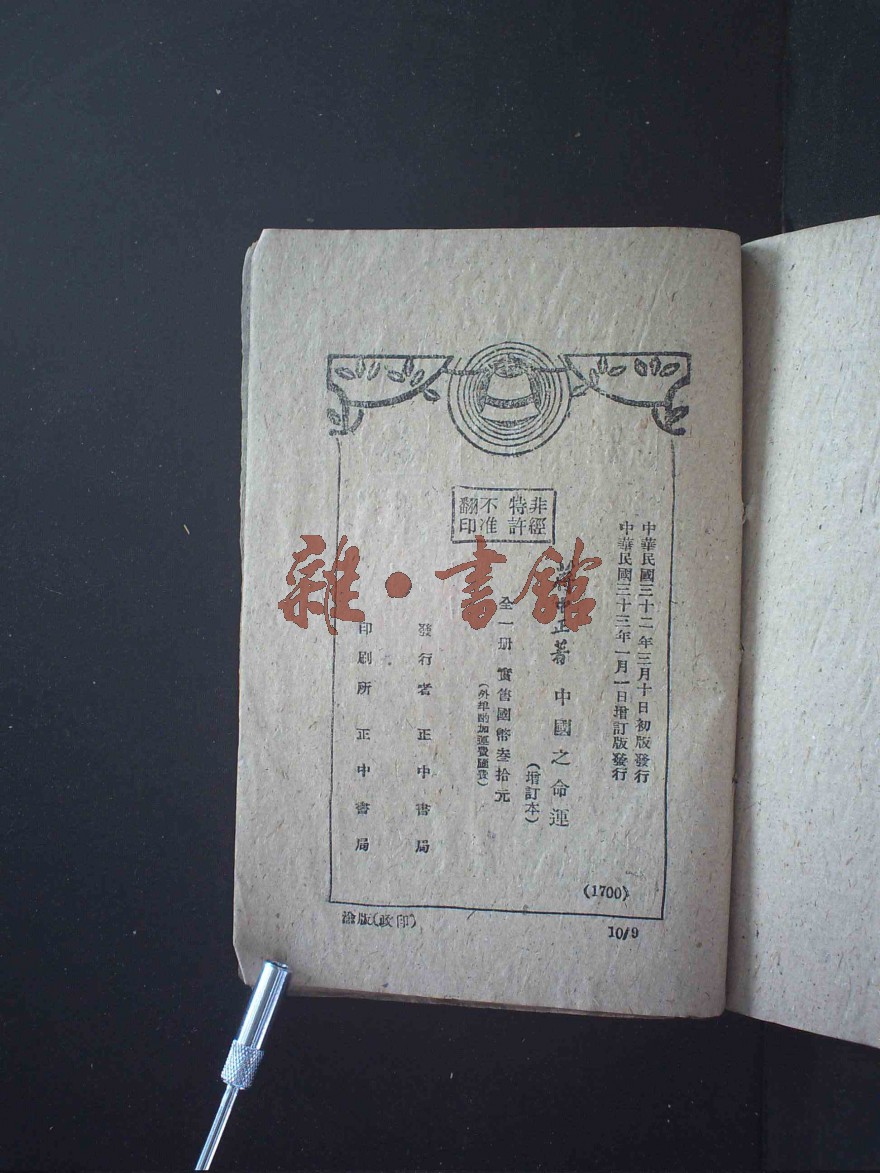 中華民國三十二年三月十日初版發行
中華民國三十三年一月一日增訂版發行
(1700)
非經
特許
不准
翻印
蔣中正著 中國之命運
(增訂本)
全一册 實售國幣叁拾元
(外埠酌加運費匯費)
發行者 正中書局
印刷所 正中書局
渝版(政印)
10/9
雜·書館